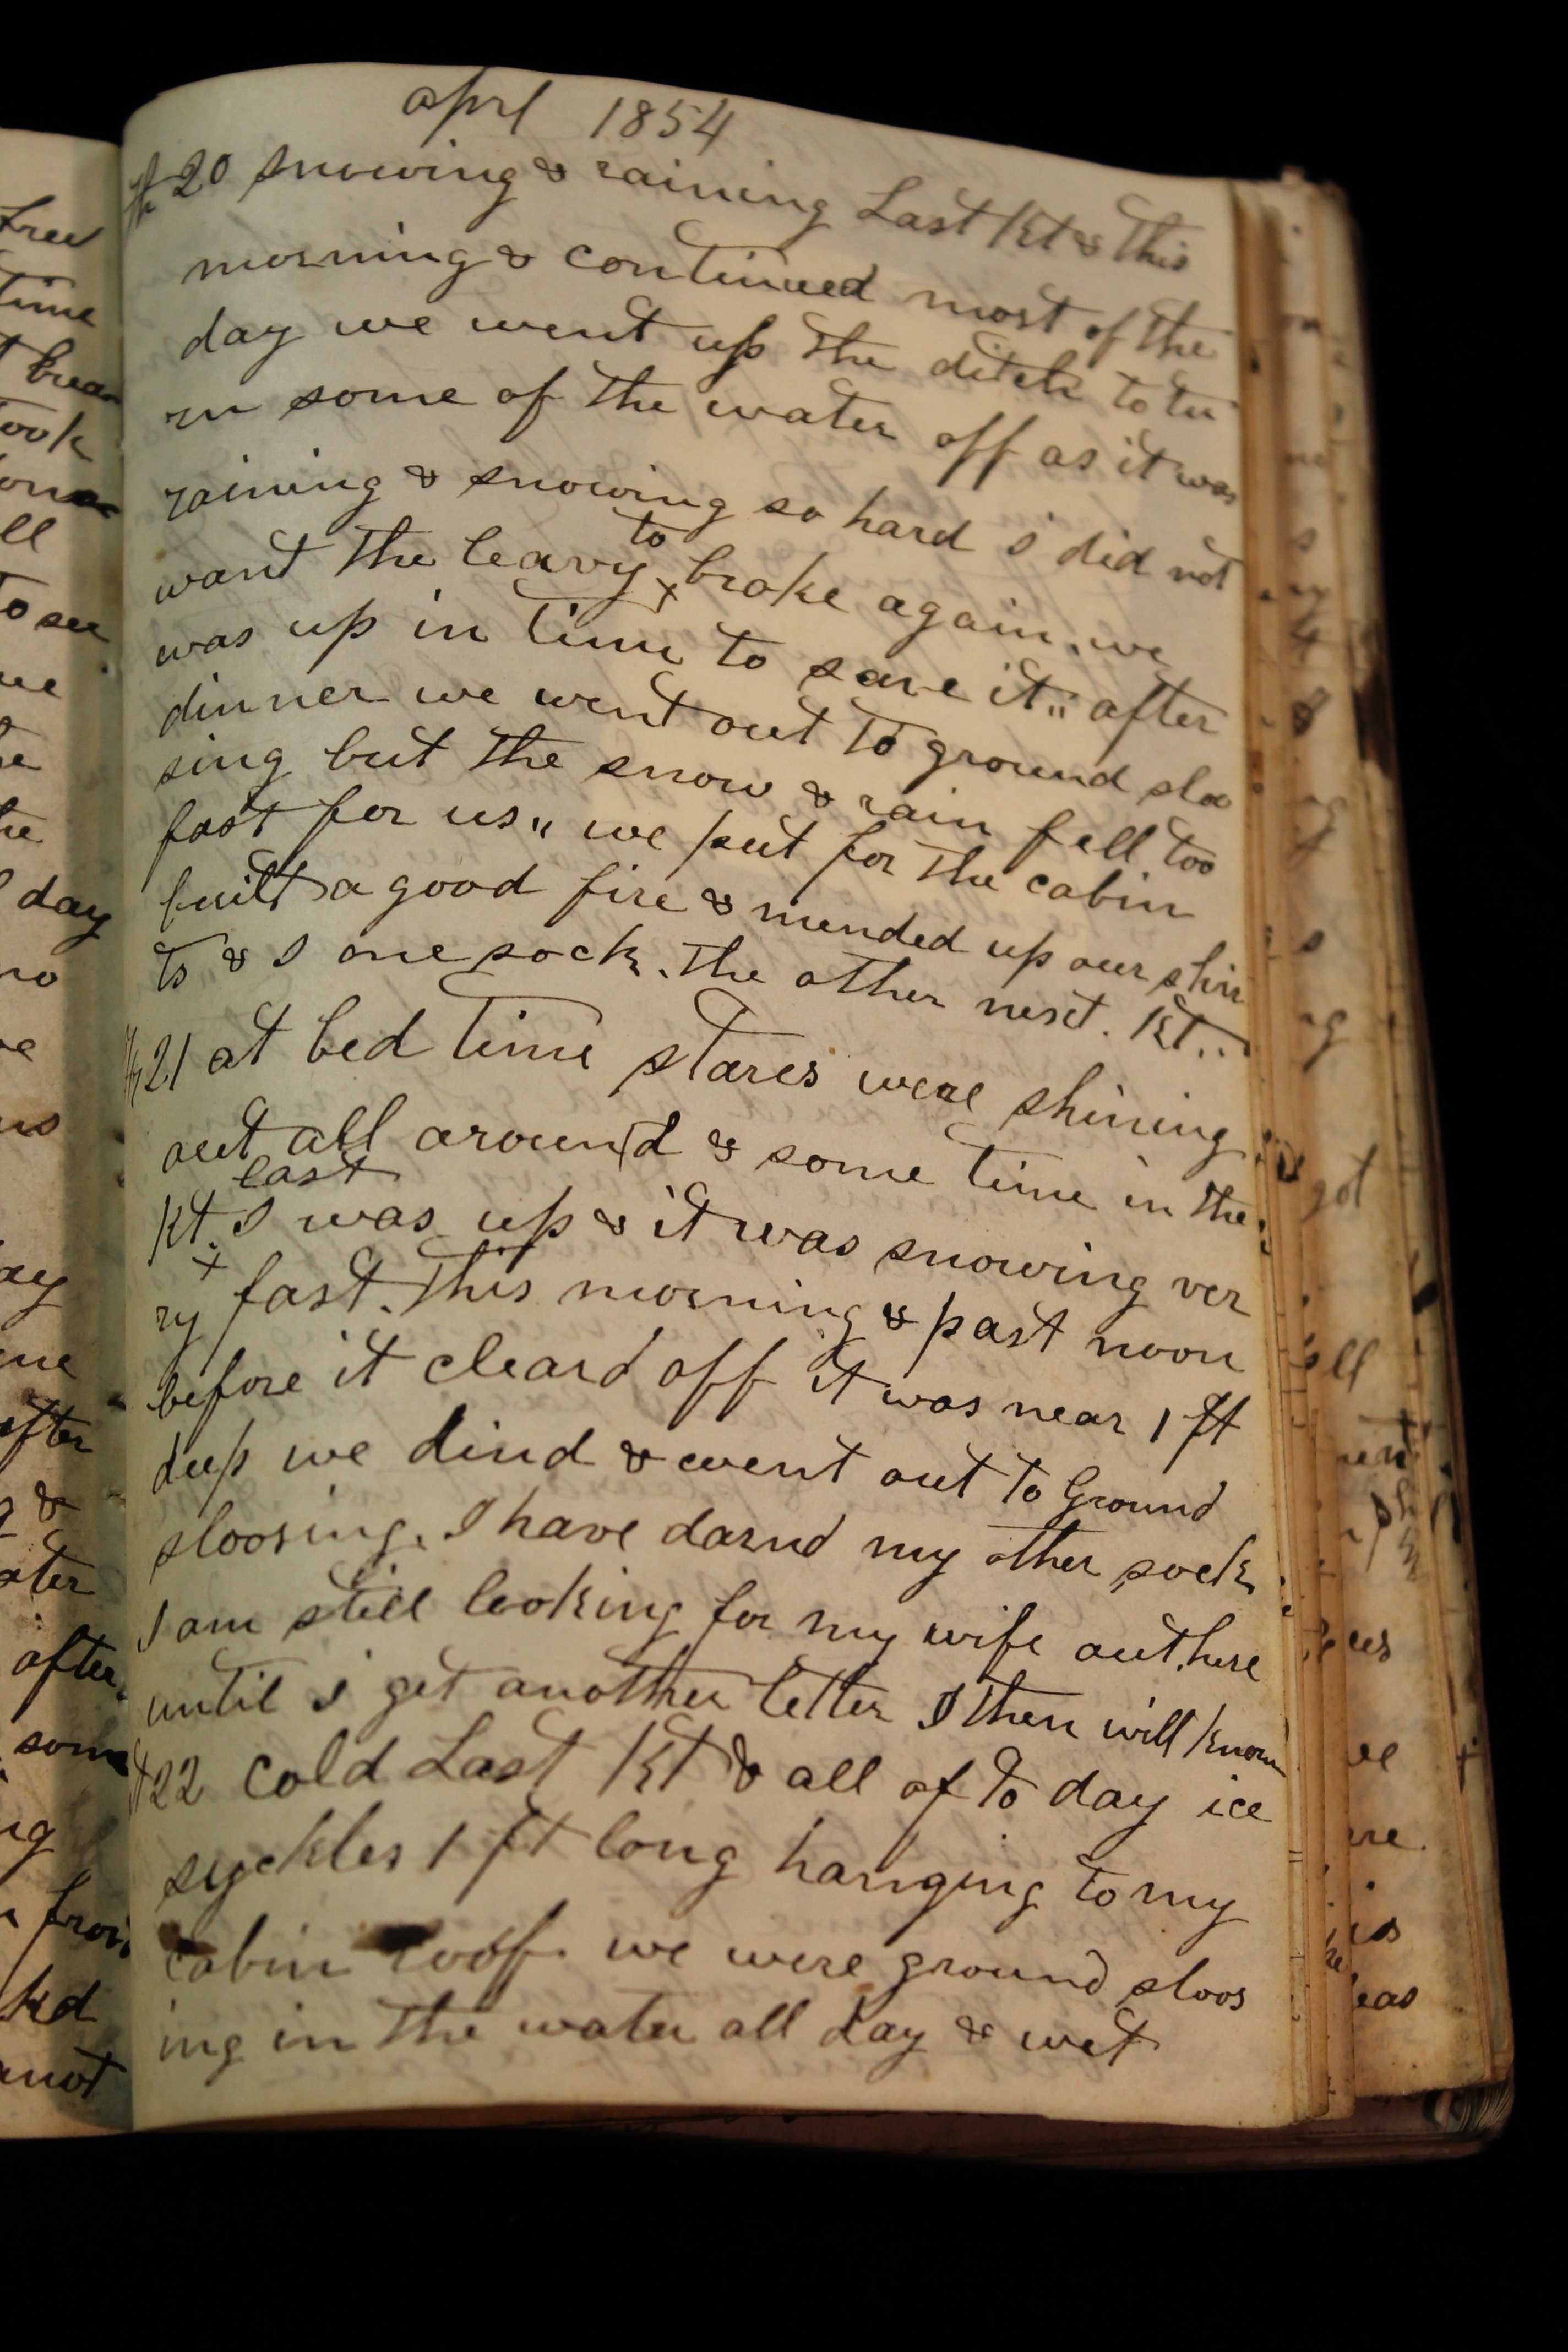 aprl 1854
th 20 snowing & raining Last Kt & this
morning & continued most of the
day we went up the ditch to tu
rn some of the water off as it was
raining & snowing so hard i did not
to
want the leavy x broke again. we
was up in time to save it" after
dinner we went out to ground sloo
sing but the snow & rain fell too
fast for us" we put for the cabin
built a good fire & mended up our shir
ts & I one sock. the other nesct. Kt..
21 at bed time stares were shining
out all around & some time in the
last
Kt. x I was up & it was snowing ver
ry fast. this morning & past noon
before it cleard off it was near 1 ft
deep we dind & went out to Ground
sloosing. I have darnd my other sock
I am still looking for my wife out here
until i get another letter I then will know
22 cold Last Kt & all of to day ice
syckles 1 ft long hanging to my
cabin roof. we were ground sloos
ing in the water all day & wet